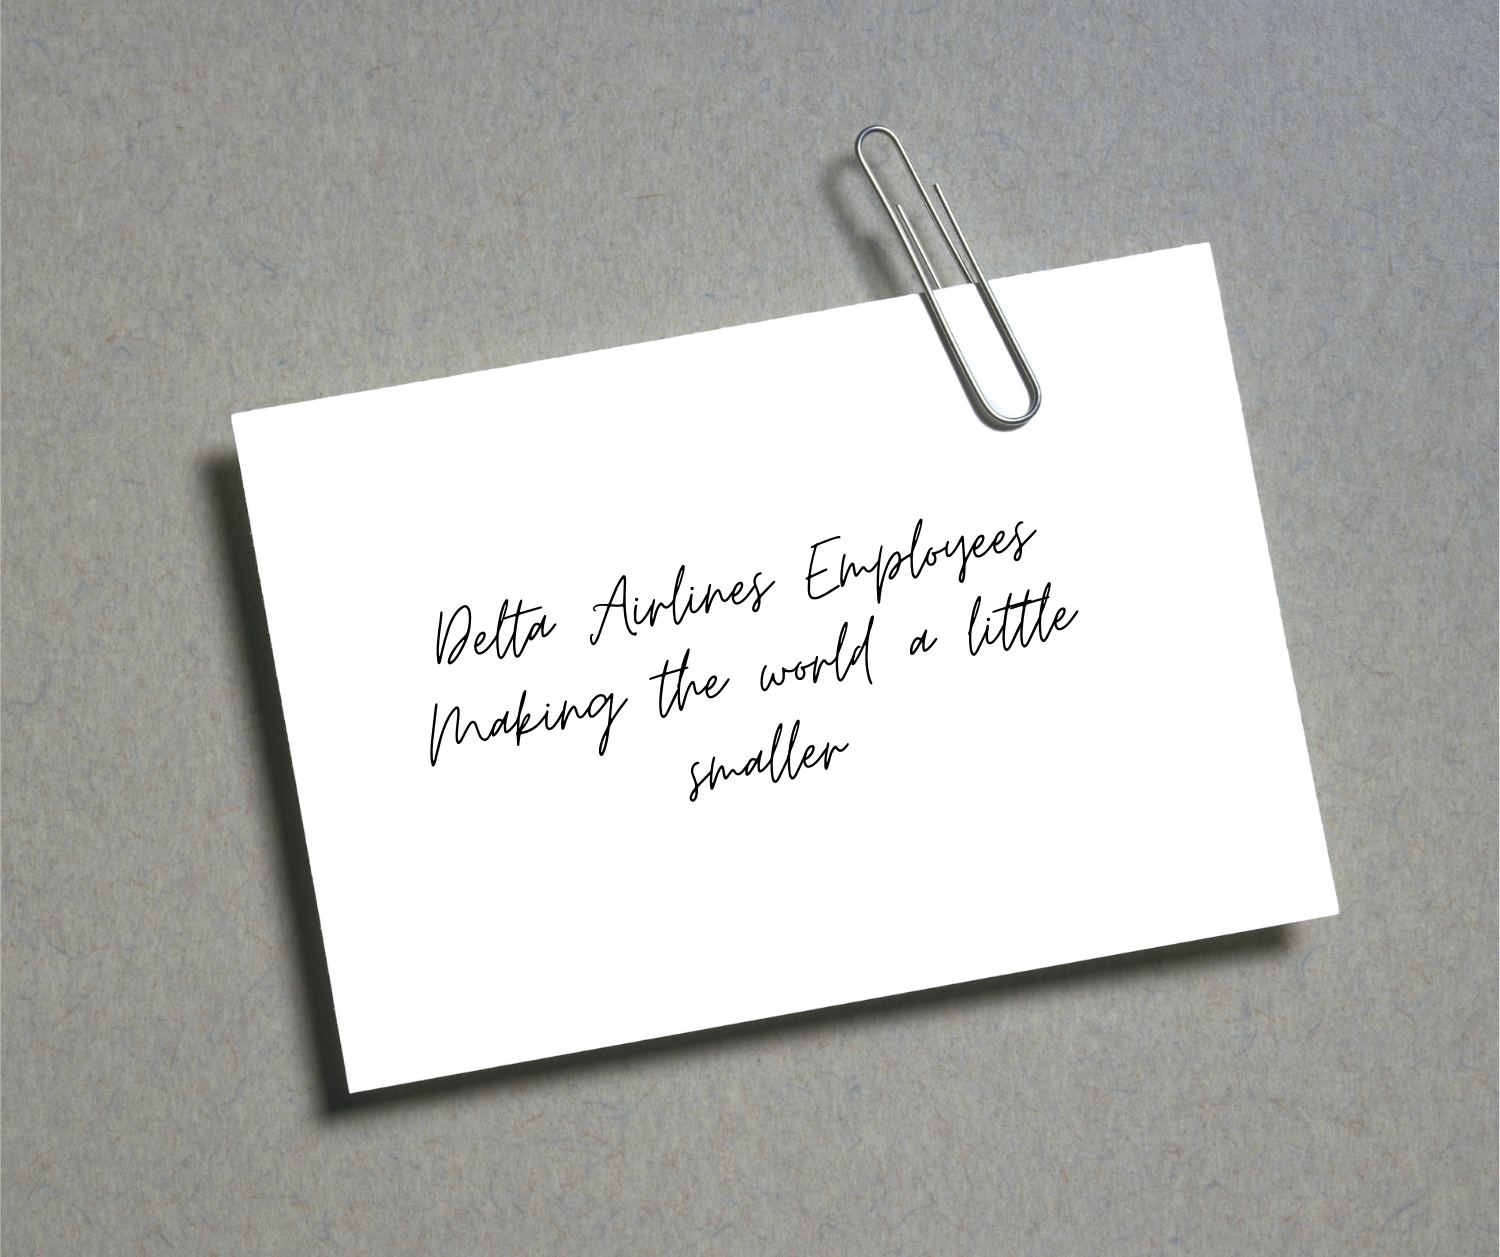 Delta Airlines Employees
Making the world a little
smaller